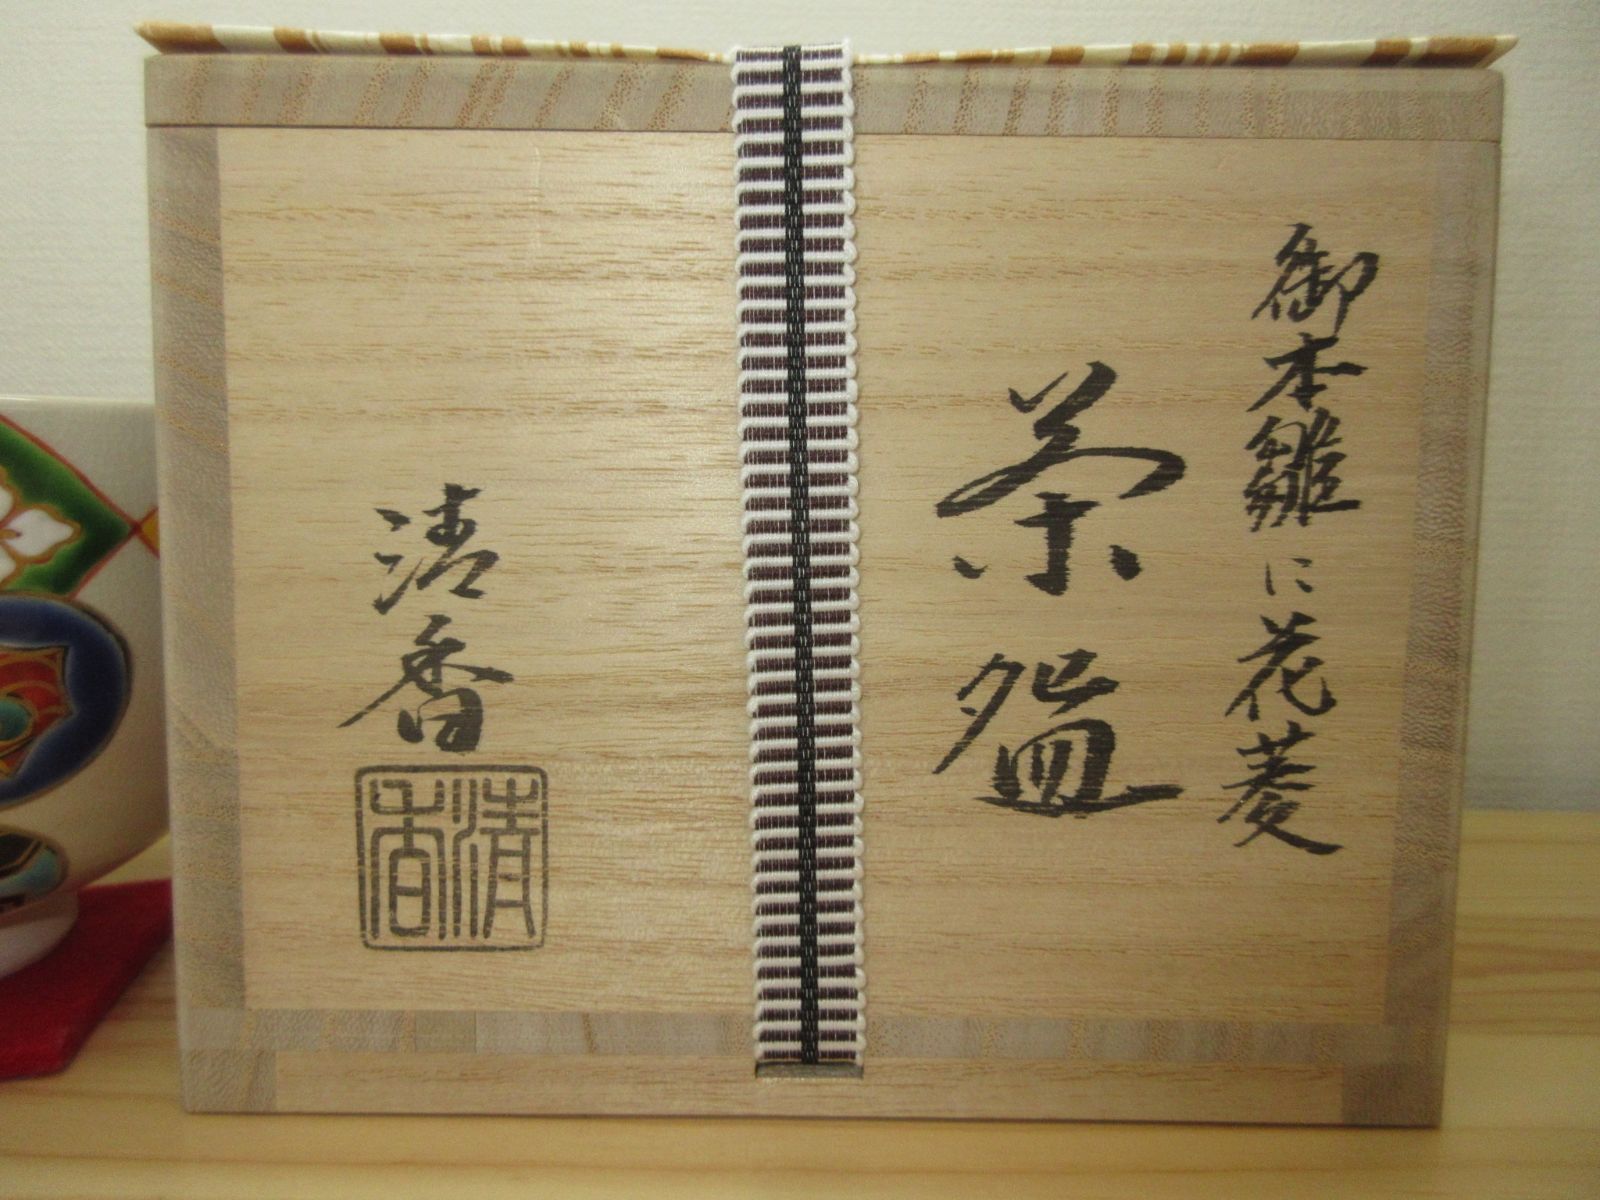 御本雛に花菱
茶盌
清香
清香